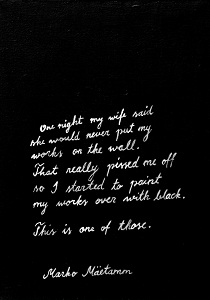 One night my wife said
she would never put my
works on the wall.
That really pissed me off
so I started to paint
my works over with black.
This is one of those.
Marko Mäetamm